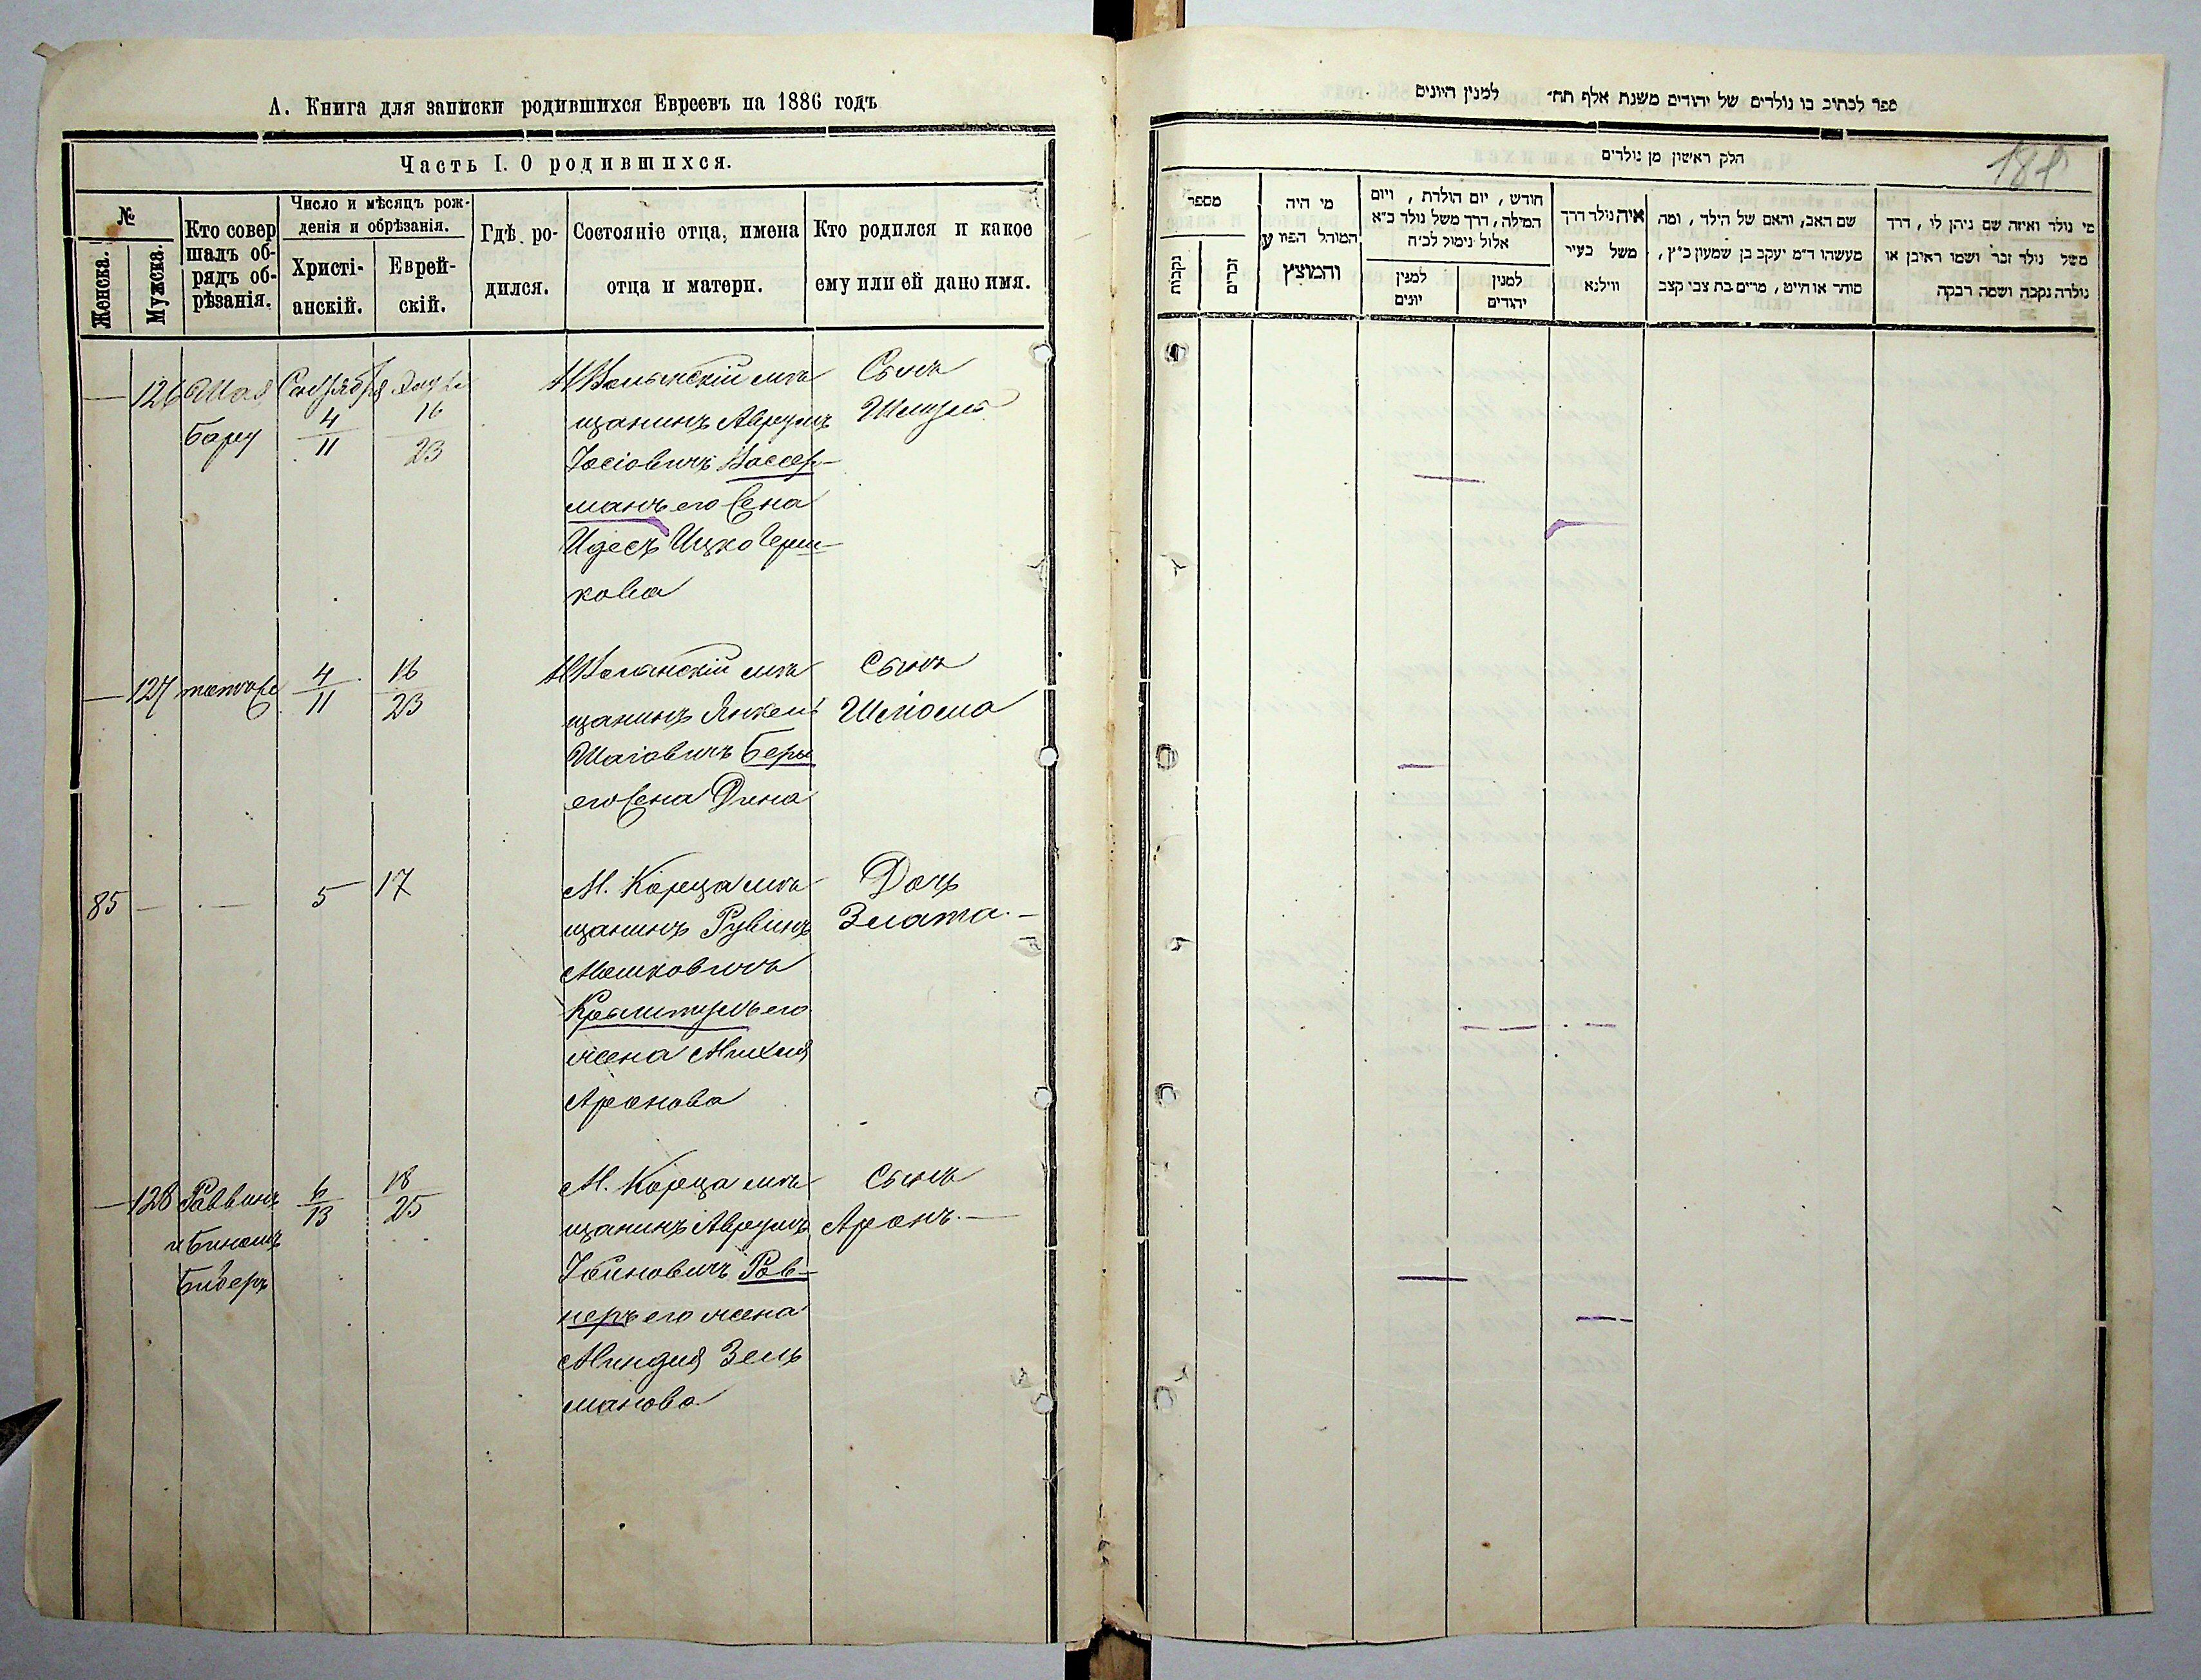 А. Книга для записки родившихся Евреевъ на 1886 годъ
Часть I. О родившихся.
№
Женска.
Мужска.
Кто совер
шалъ об-
рядъ об-
рѣзанія.
Число и мѣсяцъ рож-
денія и обрѣзанія.
Христі-
анскій.
Еврей-
скій.
Гдѣ ро-
дился.
Состояніе отца, имена
отца и матери.
Кто родился и какое
ему или ей дано имя.
— 126 Шая
Бару
Сентября
4
11
16
23
щанинъ Аврумъ
Іосіовичъ Вассер-
манъ его жена
Идесъ Ицко Герш-
кова
Сынъ
— 127 тотъ же
4
11
16
23
щанинъ Янкель
Шаговичъ Беры
его жена Дина
Сынъ
Шліома
85 — —
5
17
М. Корца мѣ
щанинъ Рувинъ
Мошковичъ
его
жена
Аронова
Дочь
Злата. —
— 128 Раввинъ
и Биномъ
Бидеръ
6
13
18
25
М. Корца мѣ
щанинъ Аврумъ
Іойновичъ Ров-
неръ его жена
Миндля Зель
манова
Сынъ
Аронъ. —
ספר לכתוב בו נולדים של יהודים משנת אלף תת״ למנין היונים
181
חלק ראשון מן נולדים
מספר
נקבות
זכרים
מי היה
המוהל הפורע
והמוצץ
חודש, יום הולדת, ויום
המילה, דרך משל נולד כ״א
אלול נימול לכ״ח
למנין
יונים
למנין
יהודים
איה נולד דרך
משל בעיר
ווילנא
שם האב, והאם של הילד, ומה
מעשהו ד״מ יעקב בן שמעון כ״ץ,
סוחר או חייט, מרים בת צבי קצב
מי נולד ואיזה שם ניתן לו, דרך
משל נולד זכר ושמו ראובן או
נולדה נקבה ושמה רבקה